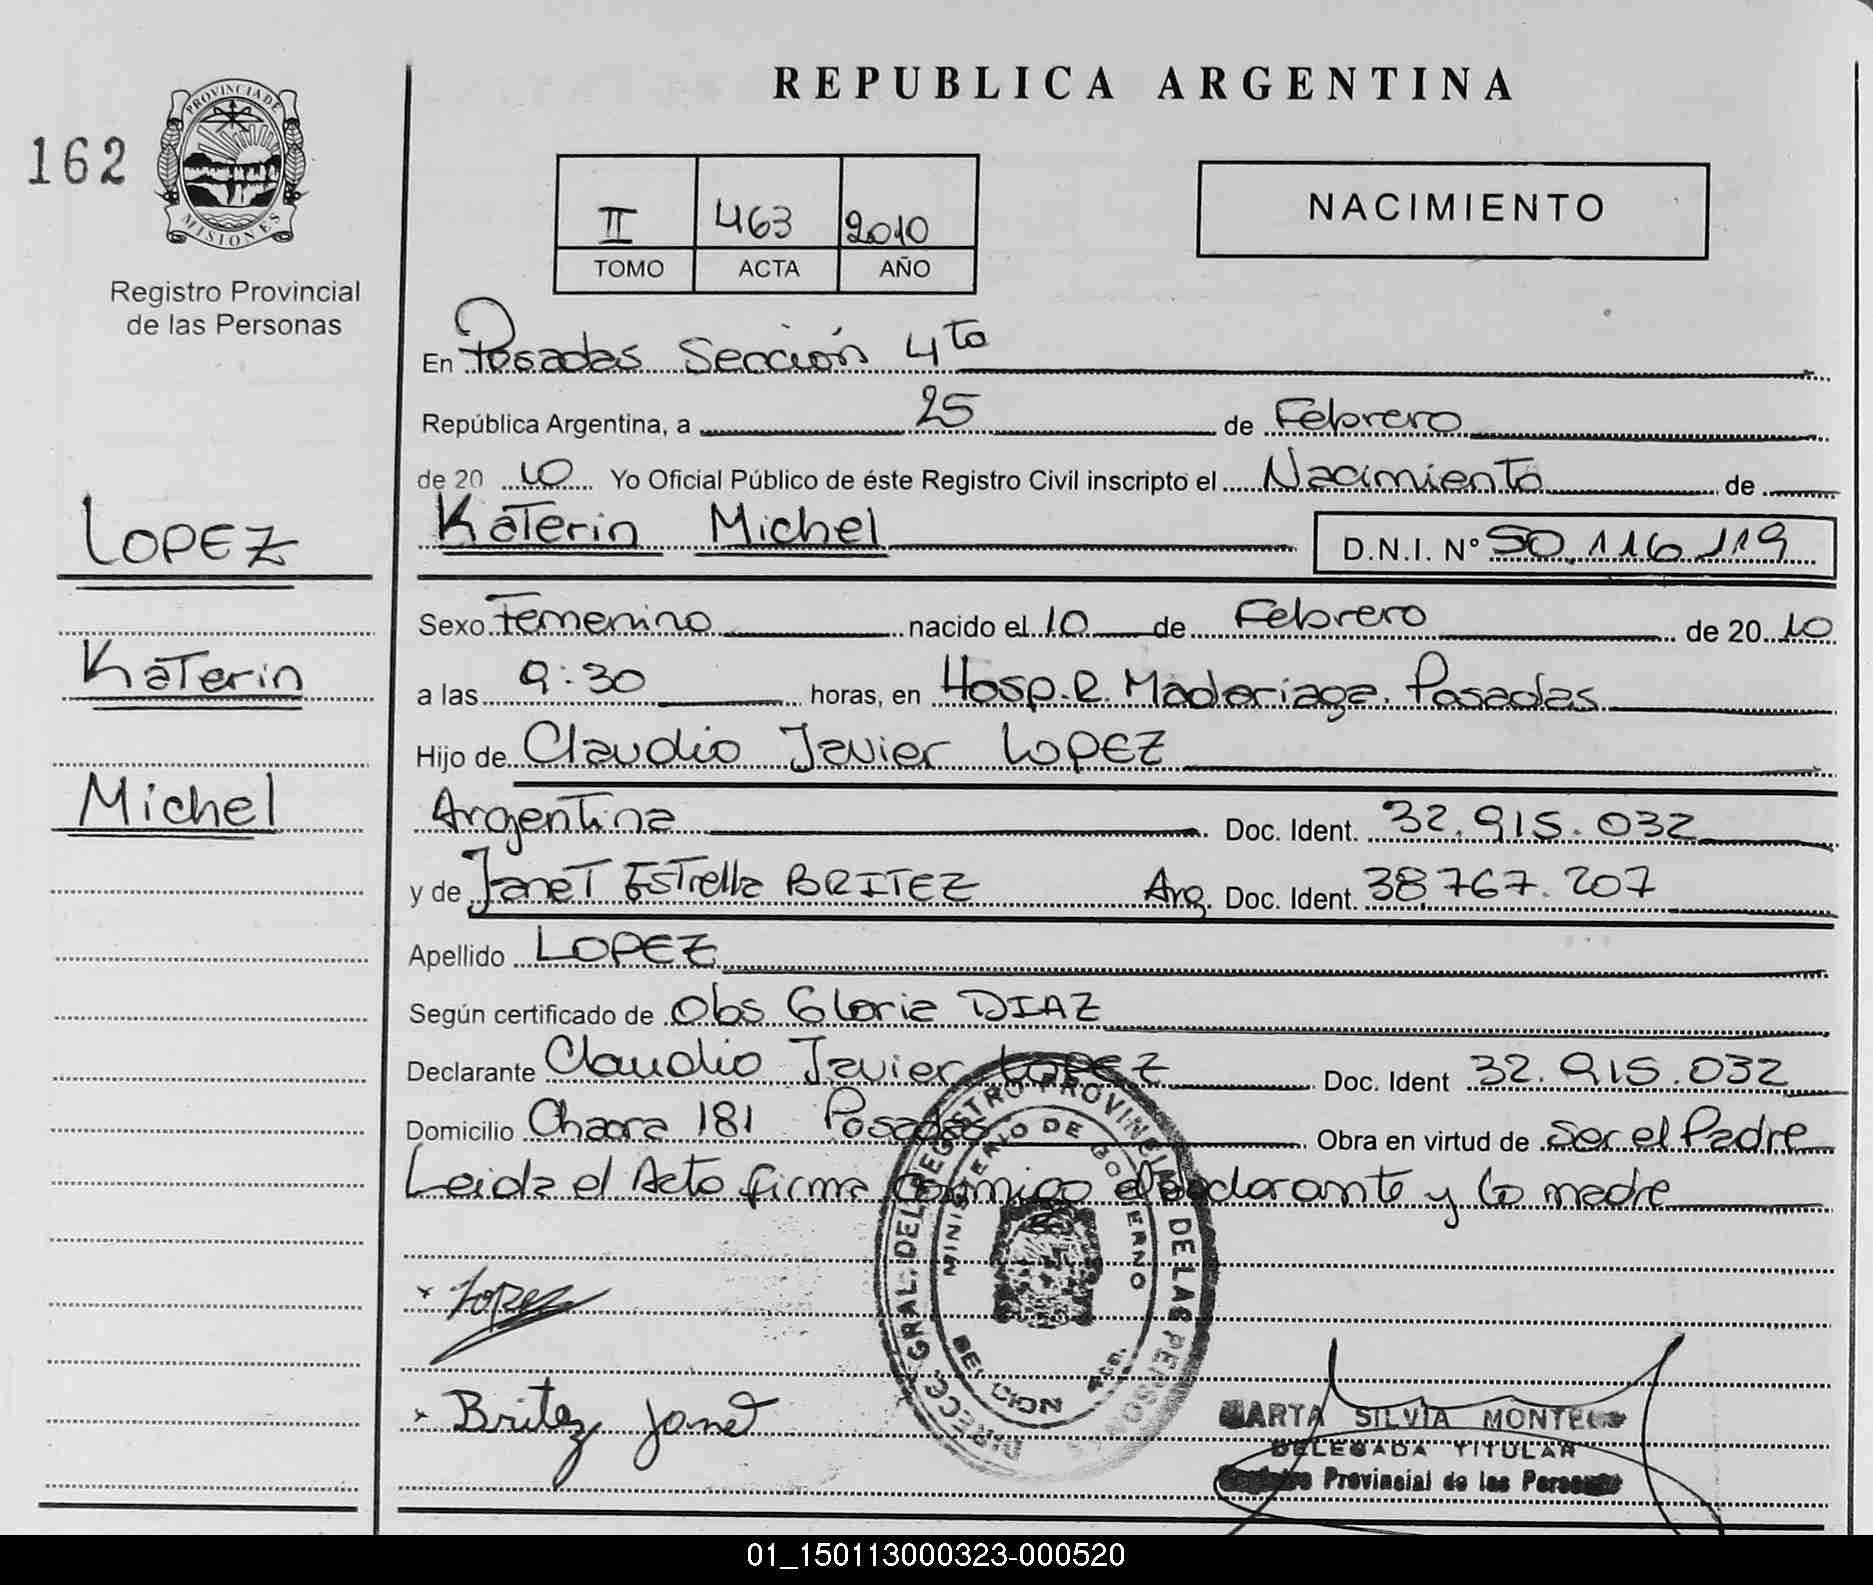 REPUBLICA ARGENTINA
162
PROVINCIA DE
MISIONES
Registro Provincial
de las Personas
II 463 2010
TOMO ACTA AÑO
NACIMIENTO
En Posadas Sección 4ta
República Argentina, a 25 de Febrero
de 20 10 Yo Oficial Público de éste Registro Civil inscripto el Nacimiento de
Katerin Michel D.N.I. N° 50.116.119
LOPEZ
Katerin
Michel
Sexo Femenino nacido el 10 de Febrero de 20 10
a las 9:30 horas, en Hosp. R. Madariaga. Posadas
Hijo de Claudio Javier LOPEZ
Argentina Doc. Ident. 32.915.032
y de Janet Estrella BRITEZ Arg. Doc. Ident. 38.767.207
Apellido LOPEZ
Según certificado de Obs Gloria DIAZ
Declarante Claudio Javier LOPEZ Doc. Ident 32.915.032
Domicilio Chacra 181 Posadas Obra en virtud de Ser el Padre
Leida el Acta firma conmigo el declarante y la madre
DIRECC. GRAL. DEL REGISTRO PROVINCIAL DE LAS PERSONAS
MINISTERIO DE GOBIERNO
x Lopez
x Britez Janet
MARTA SILVIA
DELEGADA TITULAR
Provincial de las Personas
01_150113000323-000520